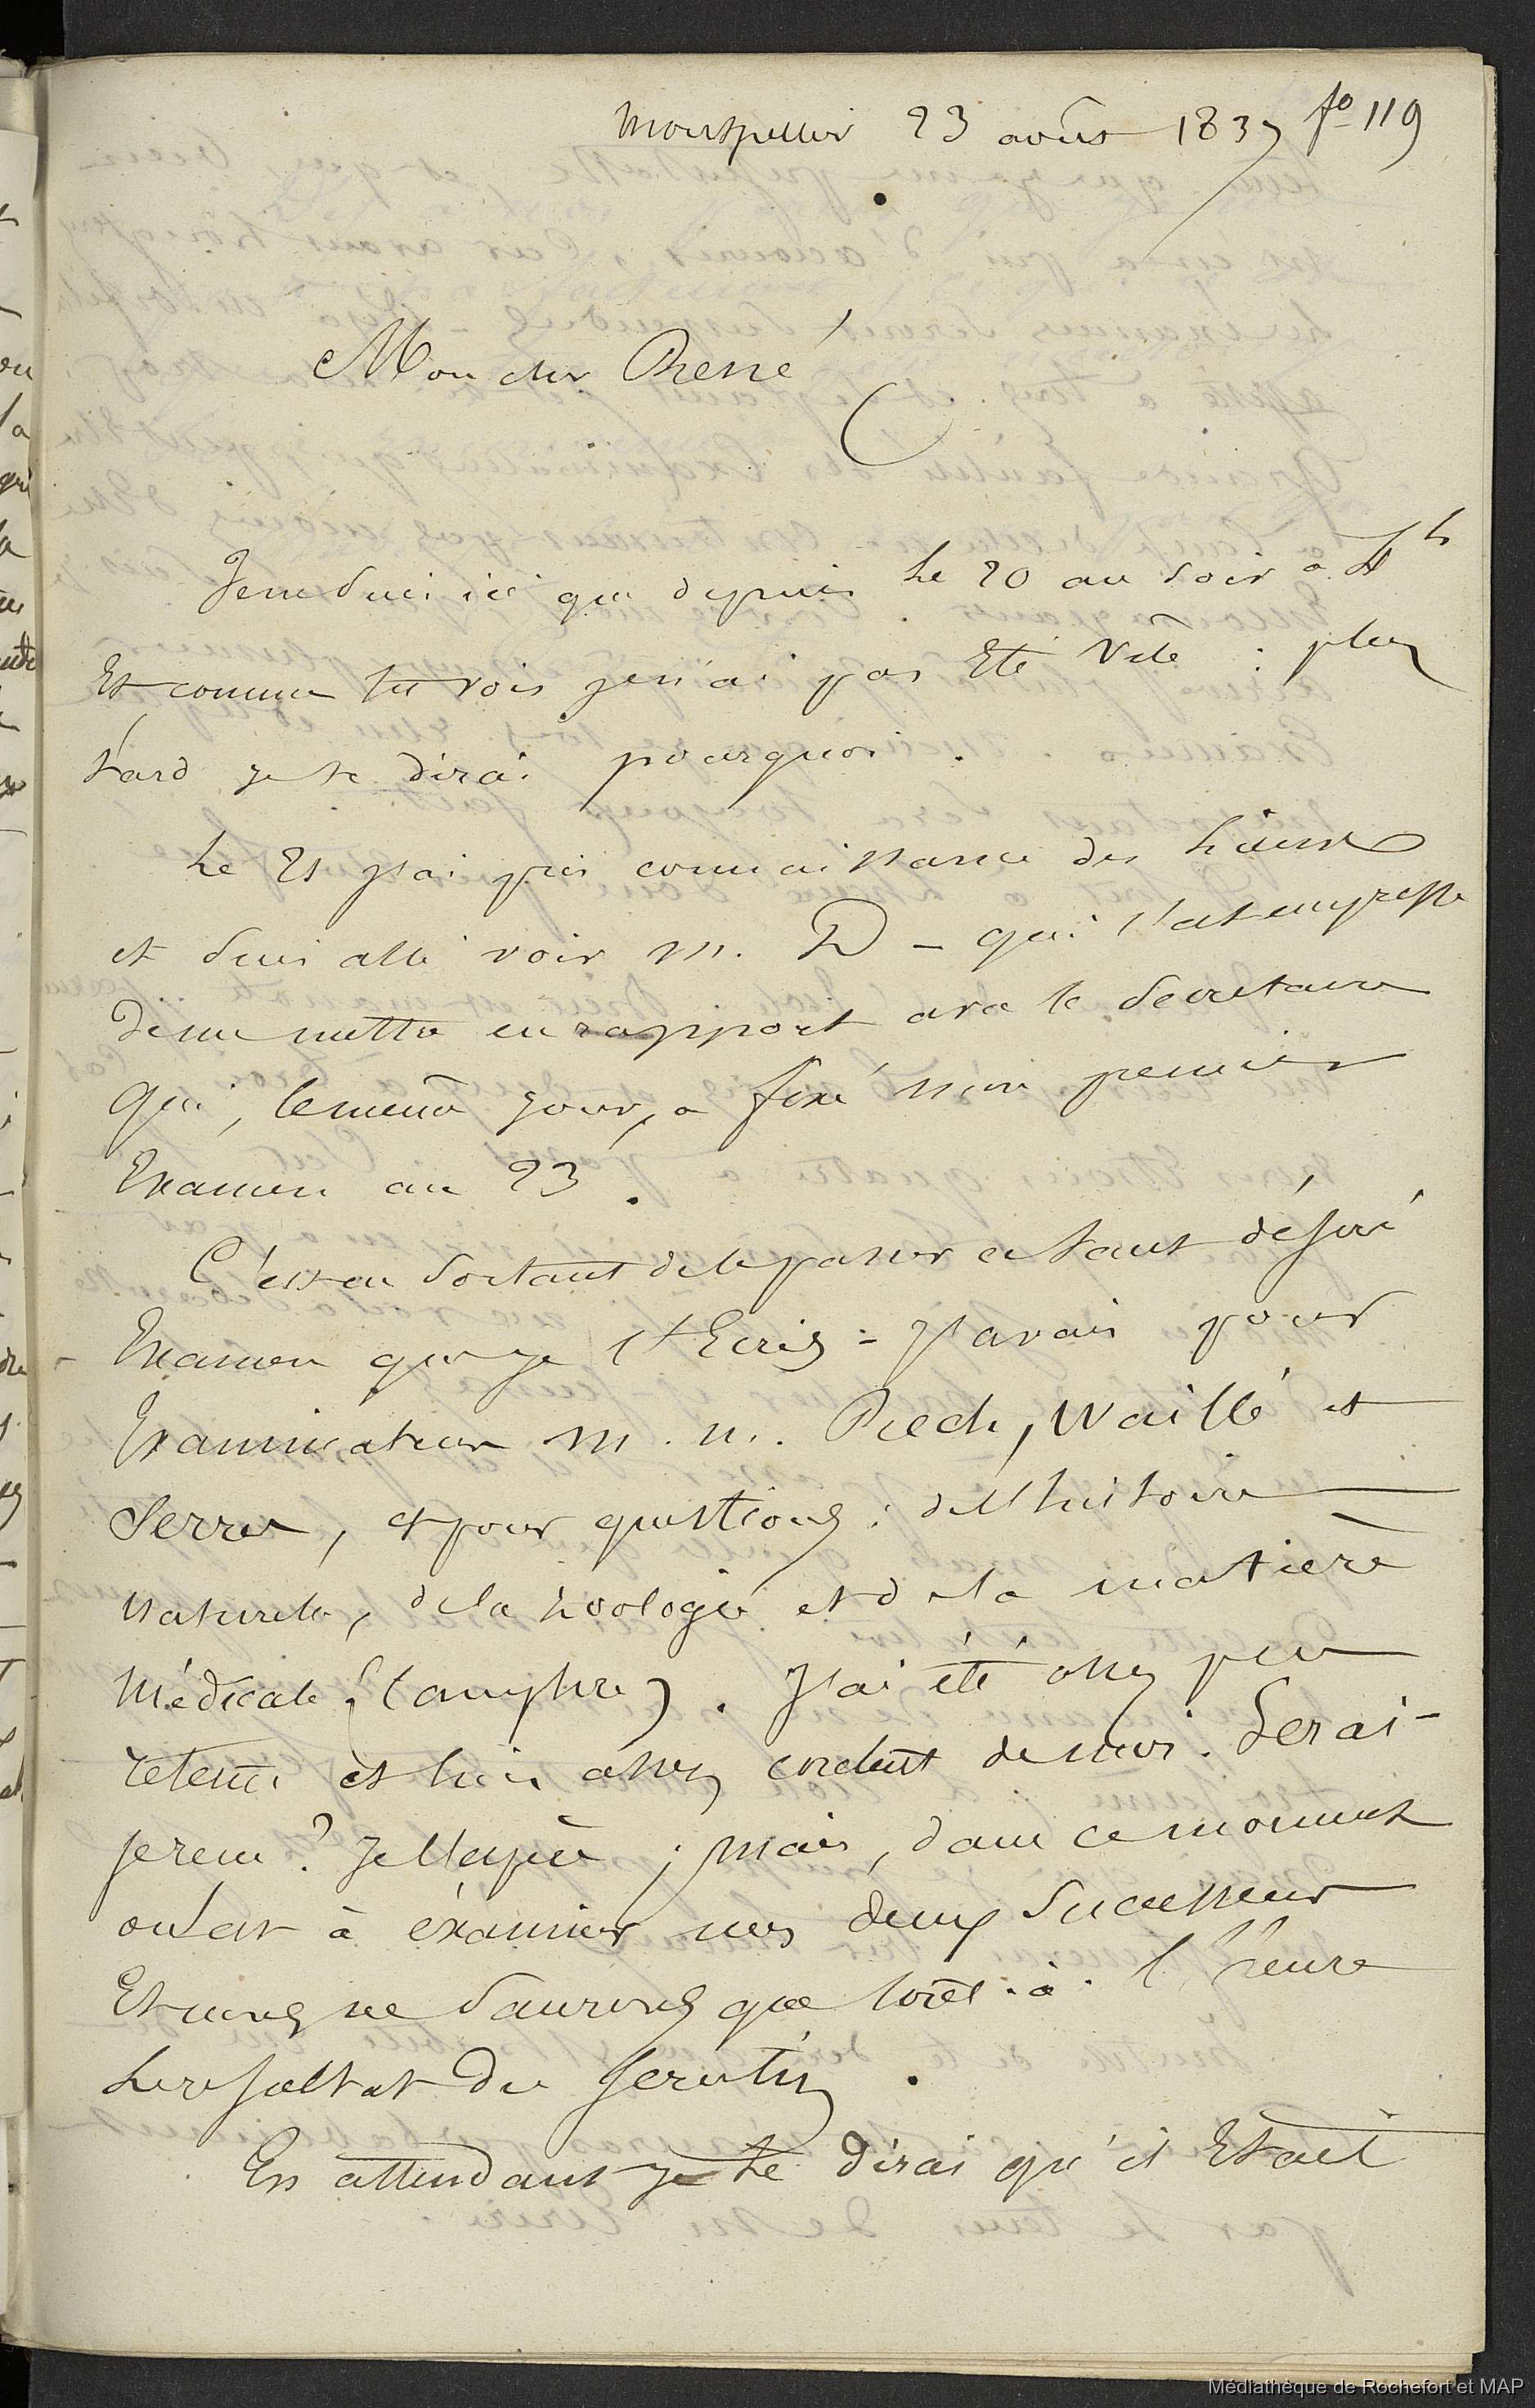 Montpellier 23 août 1837 fo 119
Mon cher René
Je ne suis ici que depuis le 20 au soir à 4 h
Et comme tu vois je n'ai pas Eté Vite : plus
tard je te dirai pourquoi.
Le 21 j'ai pris connaissance des lieux
et suis allé voir M. D – qui s'est empressé
de me mettre en rapport avec le Secretaire
qui, le même jour, a fixé mon premier
Examen au 23.
C'est en sortant de le passer ce tant désiré
Examen que je t'Ecris = J'avais pour
Examinateurs M. M. Rech, Waillé et
Serres, et pour questions : de l'histoire
Naturelle, de la zoologie et de la matière
Médicale (Camphre). J'ai été assez peu
retenu et suis assez content de moi. Serai-
je reçu ? Je l'espère ; mais, dans ce moment
on est à éxaminer mes deux Successeurs
Et nous ne Saurons que tout-à-l'heure
Le resultat du Scrutin.
En attendant je te dirai qu'il Etait
Médiathèque de Rochefort et MAP